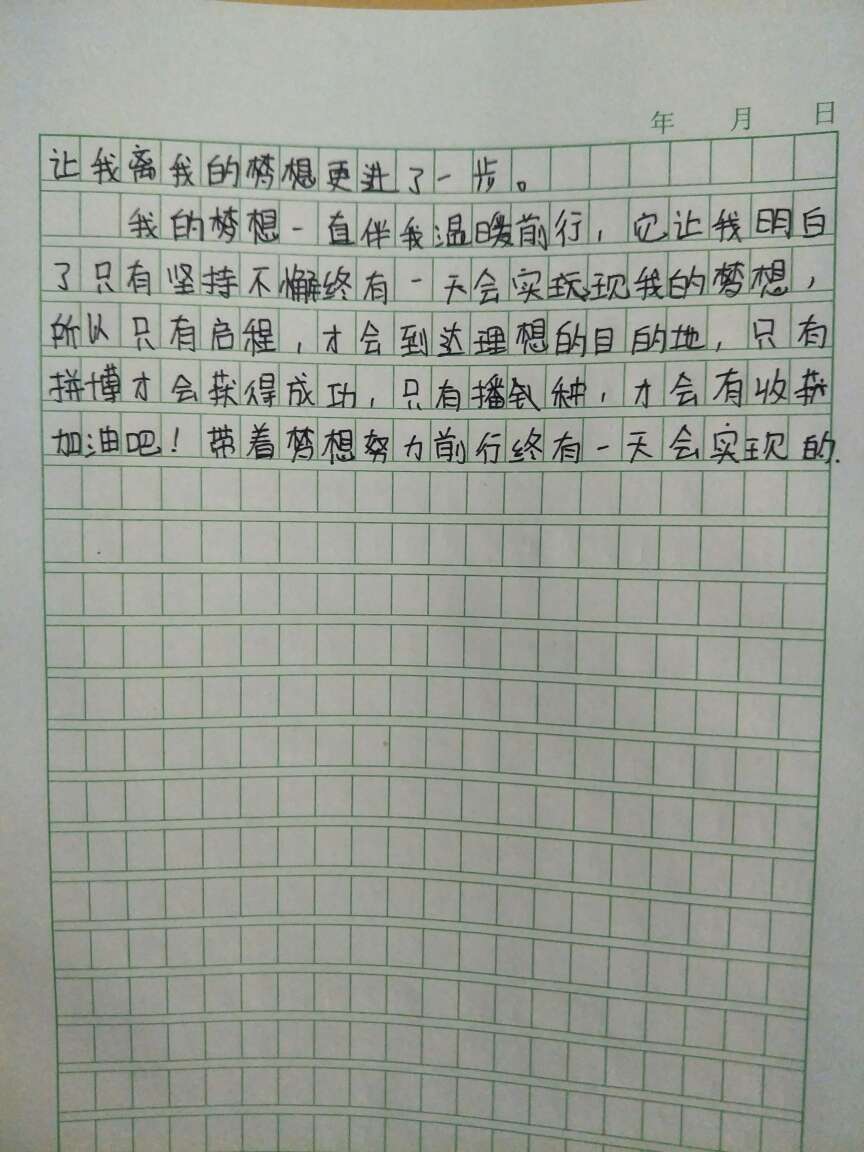 年 月 日
让我离我的梦想更进了一步。
我的梦想一直伴我温暖前行，它让我明白
了只有坚持不懈终有一天会实现我的梦想，
所以只有启程，才会到达理想的目的地，只有
拼博才会获得成功，只有播种，才会有收获
加油吧！带着梦想努力前行终有一天会实现的.